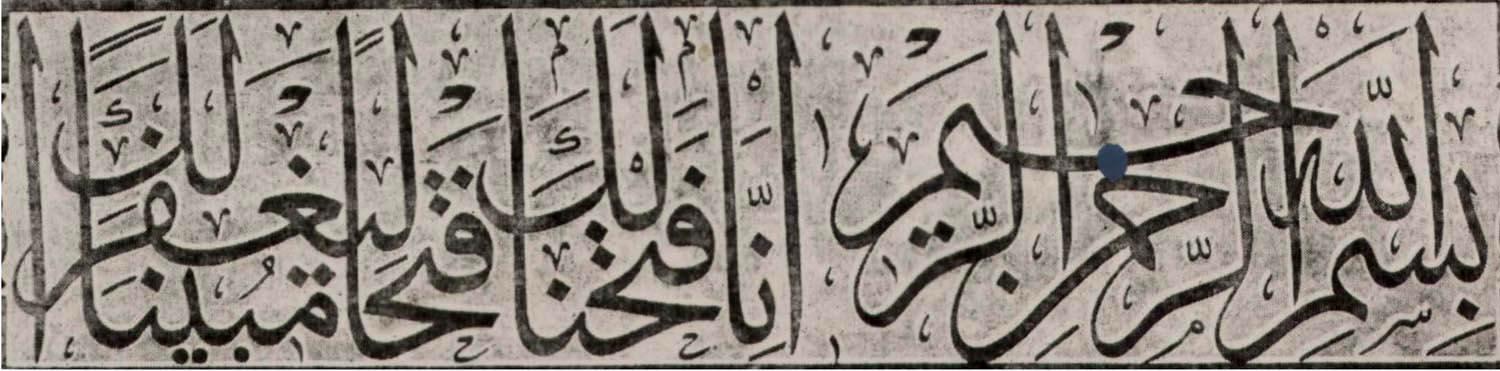 بِسْمِ اللّٰهِ الرَّحْمٰنِ الرَّحِيمِ اِنَّا فَتَحْنَا لَكَ فَتْحًا مُبِينًا لِيَغْفِرَ لَكَ